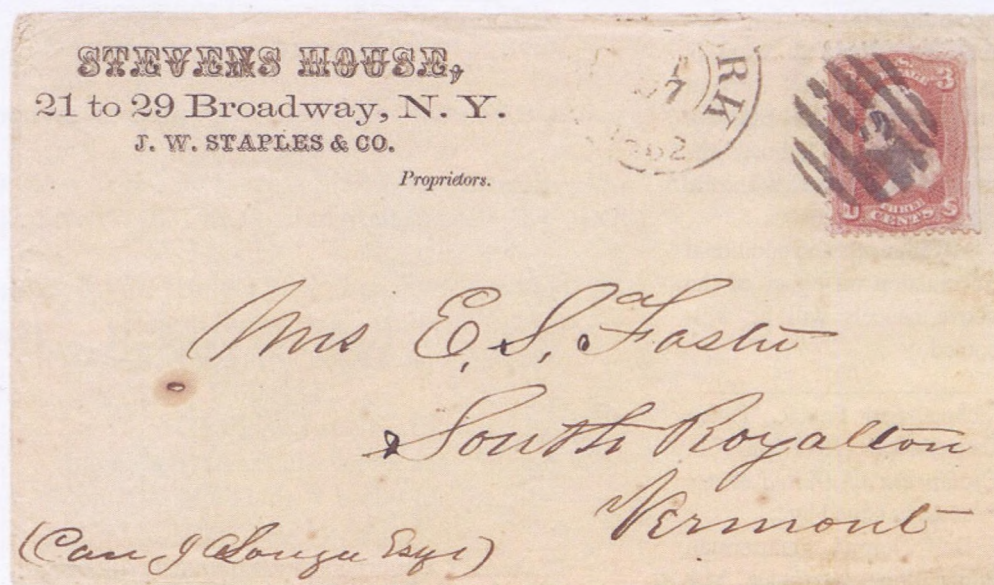 STEVENS HOUSE,
21 to 29 Broadway, N. Y.
J. W. STAPLES & CO.
Proprietors.
RK
7
1862
3
U THREE CENTS S
Mrs E. S. Foster
South Royalton
Vermont
(Care J Esqr)